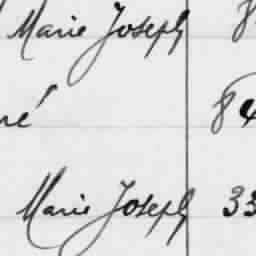 Marie Joseph 8
ré 84
Marie Joseph 33